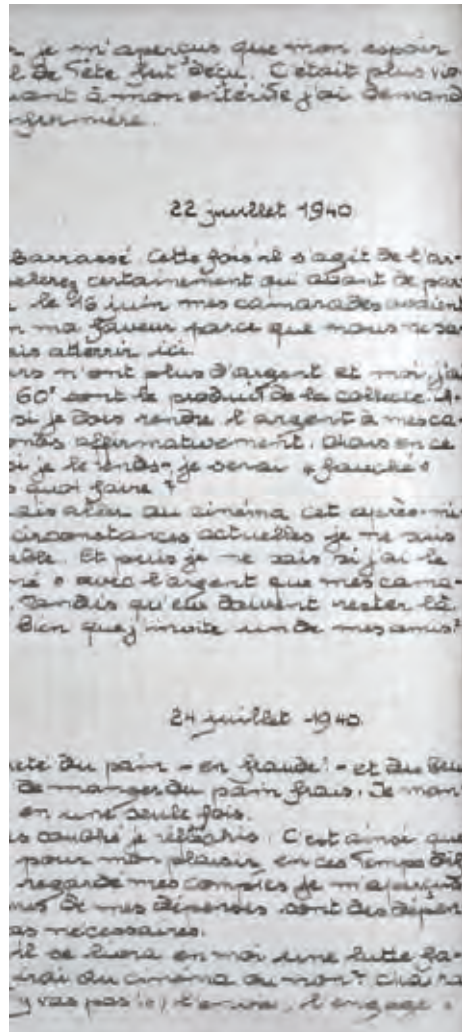 je m'aperçus que mon espoir
de tête fut déçu. C'était plus vio-
uant à mon entérite j'ai demand
nfirmière.
22 juillet 1940
barrassé. Cette fois il s'agit de l'ar-
certainement qu'avant de par
le 16 juin mes camarades avaient
n ma faveur parce que nous ne sa-
is atterrir ici.
rs n'ont plus d'argent et moi j'ai
60f sont le produit de la collecte.
si je dois rendre l'argent à mes ca-
affirmativement. Mais en ce
si je le rends, je serai "fauché"
quoi faire ?
ais aller au cinéma cet après-mi
circonstances actuelles je ne suis
ble. Et puis je ne sais si j'ai le
avec l'argent que mes cama-
. Tandis qu'eux doivent rester là.
Bien que j'invite un de mes amis ?
24 juillet 1940
eté du pain - en fraude ! - et du beu
de manger du pain frais. Je man
en une seule fois.
couché je réfléchis. C'est ainsi que
pour mon plaisir, en ces temps
regardé mes comptes je m'aperçus
mes de mes dépenses sont des dépen
as nécessaires.
il se livra en moi une lutte fa-
irai au cinéma ou non ?
y vas pas ici, l'envie, l'engage